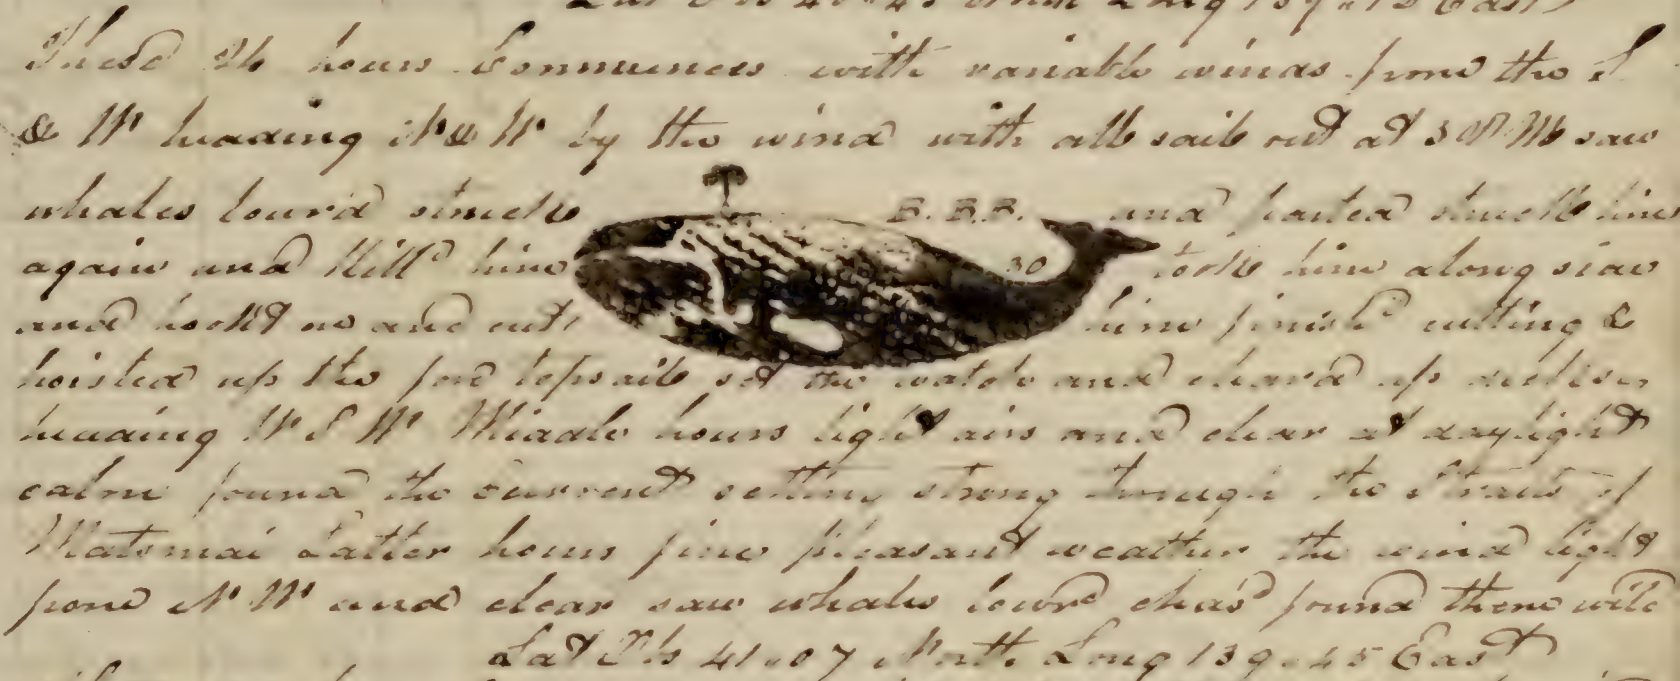 Lat Obs 40..43 North Long 139..13 East
These 24 hours Commences with variable winds from the S
& W heading N & W by the wind with all sail out at 3 P M saw
whales lowrd struck B. B. B. and parted struck him
again and killd him 30 took him along side
and hookt on and cut him finishd cutting &
hoisted up the fore topsail set the watch and cleard up
heading W S W Middle hours light airs and clear at daylight
calm found the current setting strong through the Straits of
Matsmai Latter hours fine pleasant weather the wind light
from N W and clear saw whales lowrd chasd found them wild
Lat Obs 41..07 North Long 139..45 East